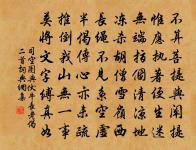 不算菩提與闡提
惟應執著便生迷
無端指個清凉地
凍殺胡僧雪嶺西
長繩不見繫空虛
半偈傳心亦未疏
推倒我山無一事
莫將文字縛真如
司空圖與伏牛長老偈
二首詩詞典網集